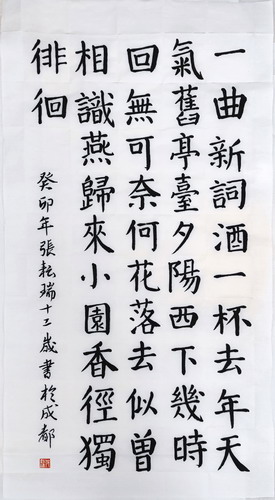 一曲新詞酒一杯去年天
氣舊亭臺夕陽西下幾時
回無可奈何花落去似曾
相識燕歸來小園香徑獨
徘徊
癸卯年張耘瑞十二歲書於成都